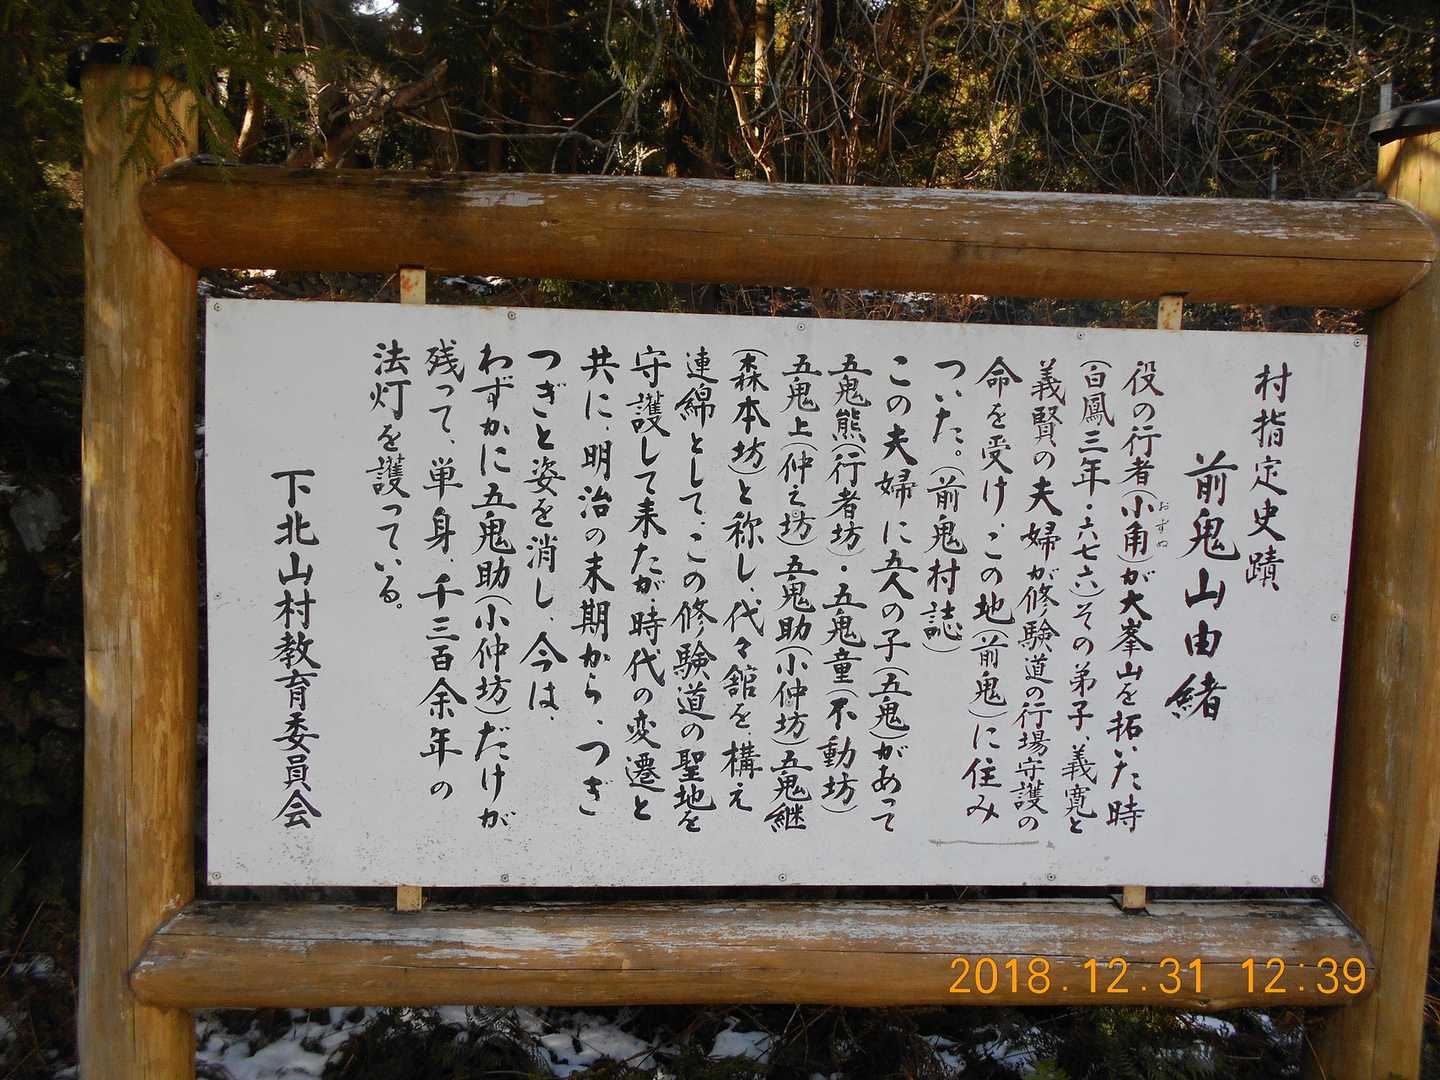 村指定史蹟
前鬼山由緒
役の行者(小角)が大峯山を拓いた時
おずぬ
(白鳳三年・六七六)その弟子、義寛と
義賢の夫婦が修験道の行場守護の
命を受け、この地(前鬼)に住み
ついた。(前鬼村誌)
この夫婦に五人の子(五鬼)があって
五鬼熊(行者坊)・五鬼童(不動坊)
五鬼上(仲之坊)五鬼助(小仲坊)五鬼継
(森本坊)と称し、代々舘を、構え
連綿として、この修験道の聖地を
守護して来たが、時代の変遷と
共に、明治の末期から、つぎ
つぎと姿を消し、今は、
わずかに五鬼助(小仲坊)だけが
残って、単身、千三百余年の
法灯を護っている。
下北山村教育委員会
2018.12.31 12:39